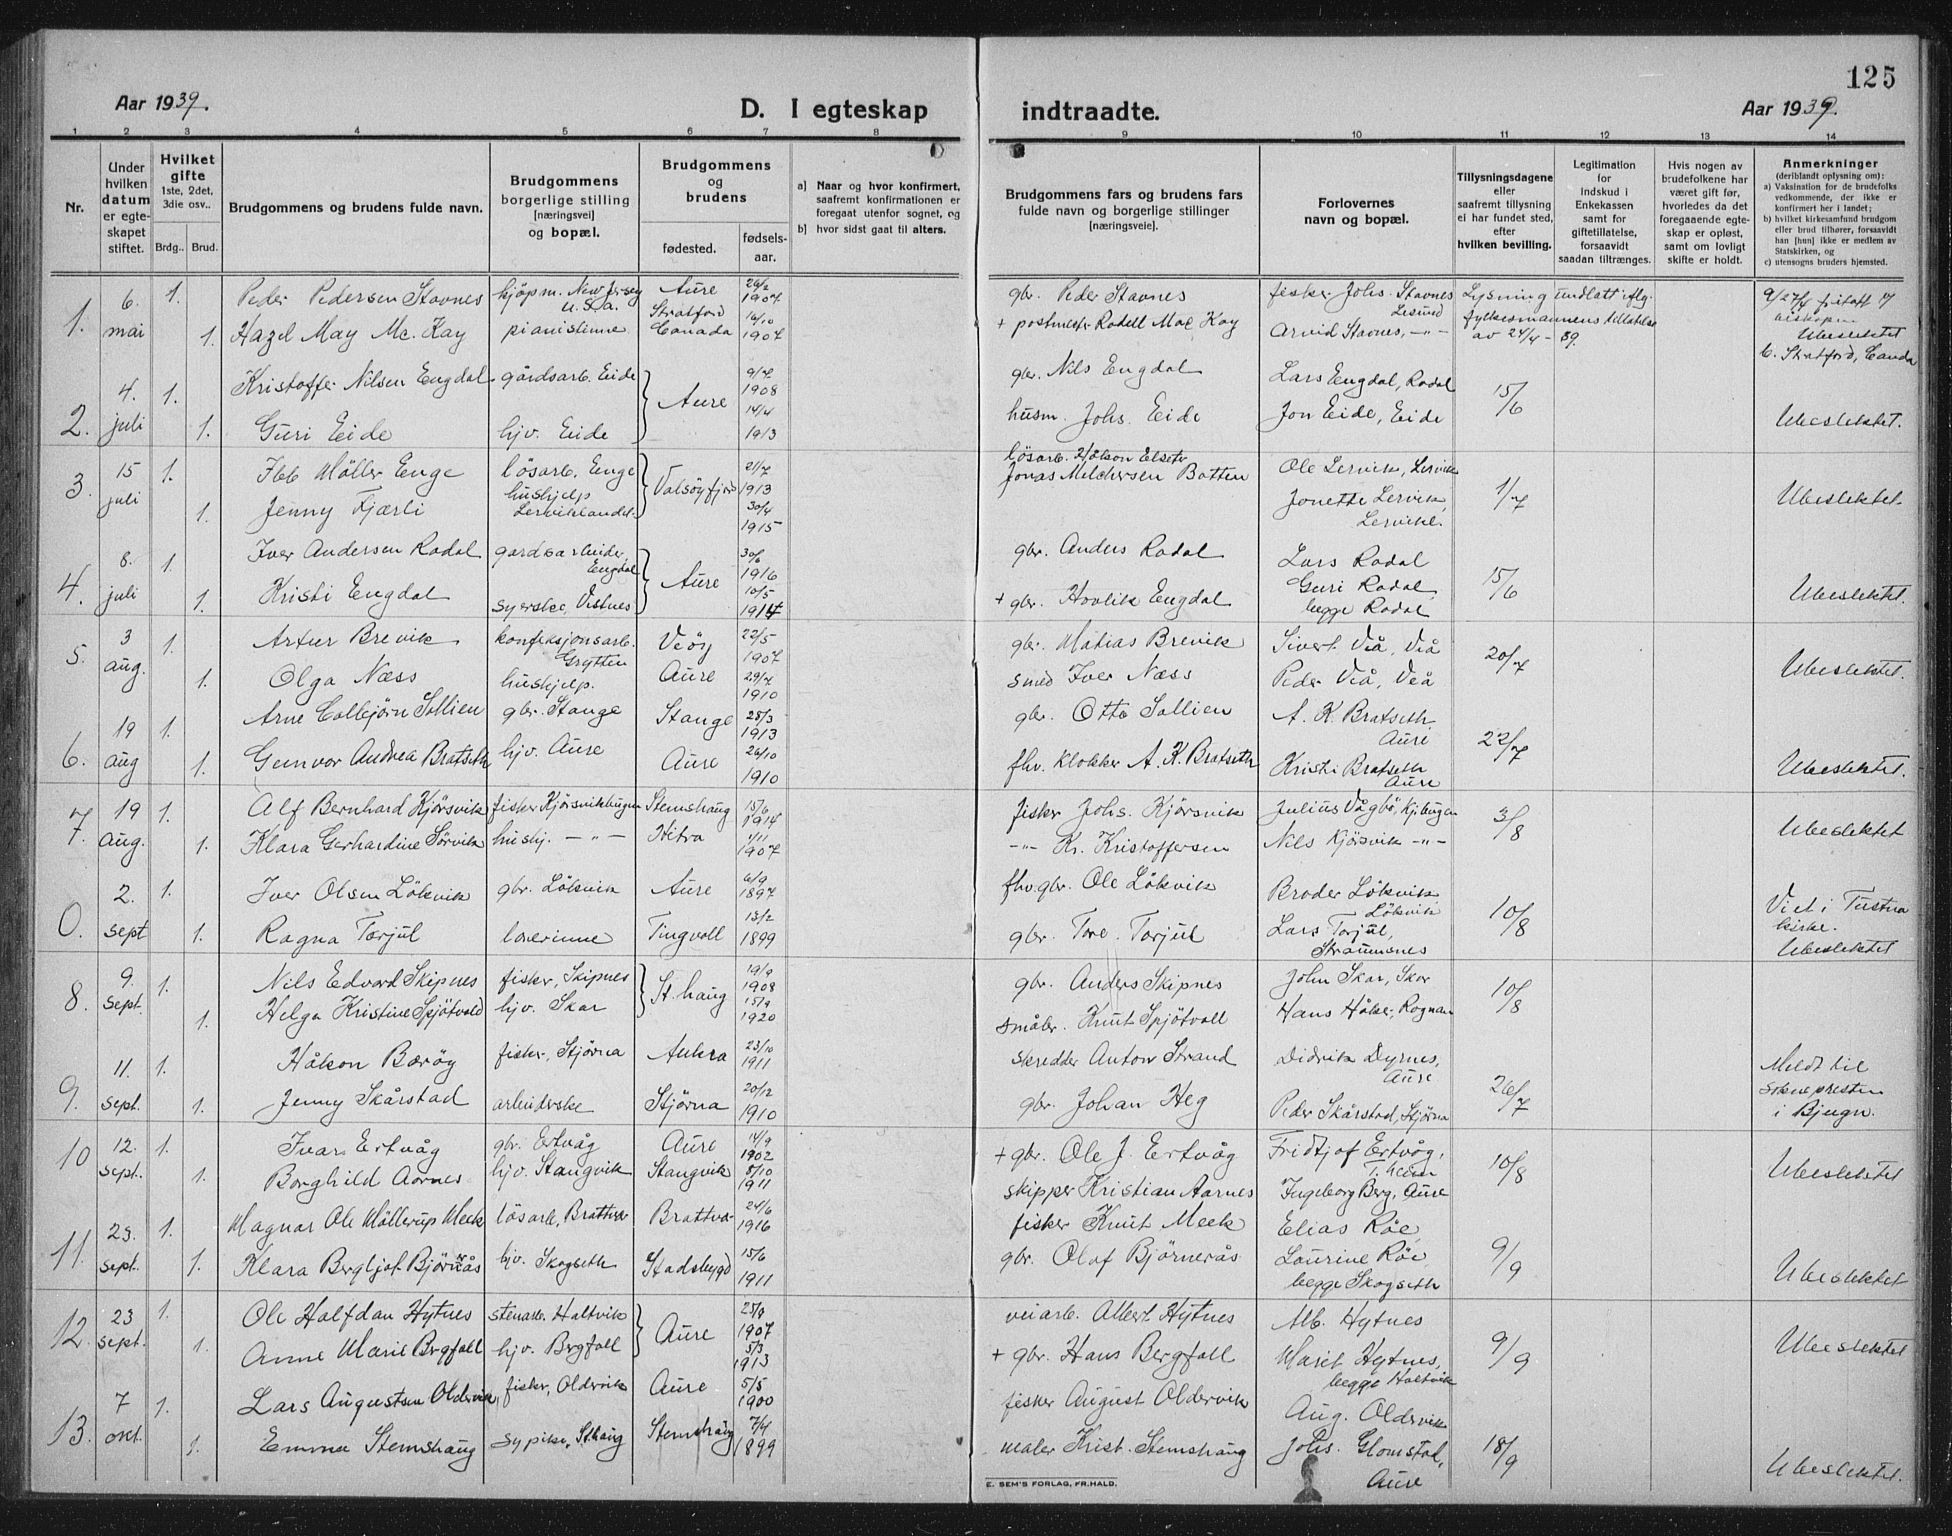 125
Aar 1939.
D. I egteskap
indtraadte.
Aar 1939.
1 2 3 4 5 6 7 8 9 10 11 12 13 14
Nr.
Under hvilken datum er egteskapet stiftet.
Hvilket gifte 1ste, 2det, 3die osv..
Brdg.. Brud.
Brudgommens og brudens fulde navn.
Brudgommens borgerlige stilling [næringsvei] og bopæl.
Brudgommens og brudens
fødested. fødselsaar.
a) Naar og hvor konfirmert, saafremt konfirmationen er foregaat utenfor sognet, og
b) hvor sidst gaat til alters.
Brudgommens fars og brudens fars fulde navn og borgerlige stillinger [næringsveie].
Forlovernes navn og bopæl.
Tillysningsdagene eller saafremt tillysning ei har fundet sted, efter hvilken bevilling.
Legitimation for indskud i Enkekassen samt for giftetillatelse, forsaavidt saadan tiltrænges.
Hvis nogen av brudefolkene har været gift før, hvorledes da det foregaaende egteskap er opløst, samt om lovligt skifte er holdt.
Anmerkninger (deriblandt oplysning om):
a) Vaksination for de brudefolks vedkommende, der ikke er konfirmert her i landet;
b) hvilket kirkesamfund brudgom eller brud tilhører, forsaavidt han [hun] ikke er medlem av Statskirken, og
c) utensogns bruders hjemsted.
1. 6. mai 1. Peder Pedersen Stavnes kjöpm. New Jersey U.S.A. Aure 1907 gbr. Peder Stavnes fisker Johs. Stavnes Lesund Lysning undlatt iflg. fylkesmannens tillatelse av 24/4 - 39.
1. Hazel May Mc. Kay pianistinne Stratford Canada 16/10 1907 + postmester Rodell Mac Kay Arvid Stavnes, -"- Ubeslektet b. Stratford, Canda
2. 4. juli 1. Kristoffer Nilsen Engdal gårdsarb. Eide Aure 9/7 1908 gbr. Nils Engdal Lars Engdal, Rodal 15/6
1. Guri Eide hjv. Eide 14/4 1913 husm. Johs. Eide Jon Eide, Eide Ubeslektet.
3. 15 juli 1. Ibb Möller Enge lösarb. Enge Valsöyfjord 21/7 1913 lösarb. Håkon Elseth Ole Lervik, Lervik 1/7
1. Jenny Fjærli hushjelp Lerviklandet. 30/4 1915 Jonas Melchersen Botten Jonette Lervik, Lervik. Ubeslektet.
4. 8. juli 1. Iver Andersen Rodal gardsarbeider, Engdal Aure 30/6 1916 gbr. Anders Rodal Lars Rodal 15/6
1. Kristi Engdal syerske, Vistnes 10/5 1914 + gbr. Hovlik Engdal Guri Rodal begge Rodal Ubeslektet.
5. 3 aug. 1. Artur Brevik konfeksjonsarb. Grytten Veöy 22/5 1907 gbr. Matias Brevik Sivert Viå, Viå 20/7
1. Olga Næss hushjelp. Aure 29/7 1910 smed Iver Næss Peder Viå, Viå Ubeslektet.
6. 19 aug 1. Arne Colbjörn Sollien gbr. Stange Stange 28/3 1913 gbr. Otto Sollien A. K. Bratseth Aure 22/7
1. Gunvor Andrea Bratseth hjv. Aure Aure 26/10 1910 fhv. klokker A. K. Bratseth Kristi Bratseth Aure Ubeslektet.
7. 19 aug. 1. Alf Bernhard Kjörsvik fisker Kjörsvikbugen Stemshaug 15/6 1914 fisker Johs. Kjörsvik Julius Vågbö, Kj.bugen 3/8
1. Klara Gerhardine Sörvik hushj. -"- Hitra 1/11 1907 -"- Kr. Kristoffersen Nils Kjörsvik -"- Ubeslektet
0. 2. sept 1. Iver Olsen Lökvik gbr. Lökvik Aure 6/9 1897 fhv. gbr. Ole Lökvik Broder Lökvik Lökvik 10/8 Viet i Tustna kirke.
1. Ragna Torjul lærerinne Tingvoll 13/2 1899 gbr. Tore Torjul Lars Torjul, Straumsnes Ubeslektet
8. 9. sept. 1. Nils Edvard Skipnes fisker, Skipnes St.haug 19/9 1908 gbr. Anders Skipnes John Skar, Skar 10/8
1. Helga Kristine Spjötvold hjv. Skar 15/9 1920 småbr. Knut Spjötvoll Hans
9. 11. sept. 1. Håkon Bæröy fisker, Stjörna Aukra 23/10 1911 skredder Anton Strand Didrik Dyrnes, Aure 26/7 Meldt til soknepresten i Bjugn.
1. Jenny Skårstad arbeiderske Stjörna 20/12 1910 gbr. Johan Heg Peder Skårstad, Stjörna
10 12. sept. 1. Ivar Ertvåg gbr. Ertvåg Aure 14/9 1902 + gbr. Ole J. Ertvåg Fridtjof Ertvåg, 10/8
1. Borghild Aarnes hjv. Stangvik Stangvik 8/10 1911 skipper Kristian Aarnes Ingeborg Berg, Aure Ubeslektet
11. 23. sept. 1. Magnar Ole Möllerup Meek lösarb., Brattvær Brattvær 24/6 1916 fisker Knut Meek Elias Röe 9/9
1. Klara Bergljot Björnerås hjv. Skogseth Stadsbygd 15/6 1911 gbr. Olaf Björnerås Laurine Röe begge Skogseth Ubeslektet
12. 23 sept. 1. Ole Halfdan Hytnes stenarb. Holtvik Aure 25/8 1907 veiarb. Albert Hytnes Alb. Hytnes 9/9
1. Anne Marie Bergfall hjv. Bergfall 5/3 1913 + gbr. Hans Bergfall Marit Hytnes, begge Holtvik Ubeslektet
13. 7 okt. 1. Lars Augustsen Oldervik fisker, Oldervik Aure 5/5 1900 fisker August Oldervik Aug. Oldervik 18/9
1. Emma Stemshaug sypike, St.haug Stemshaug 7/4 1899 maler Krist. Stemshaug Johs. Glomstad, Aure Ubeslektet.
E. SEM'S FORLAG, FR.HALD.